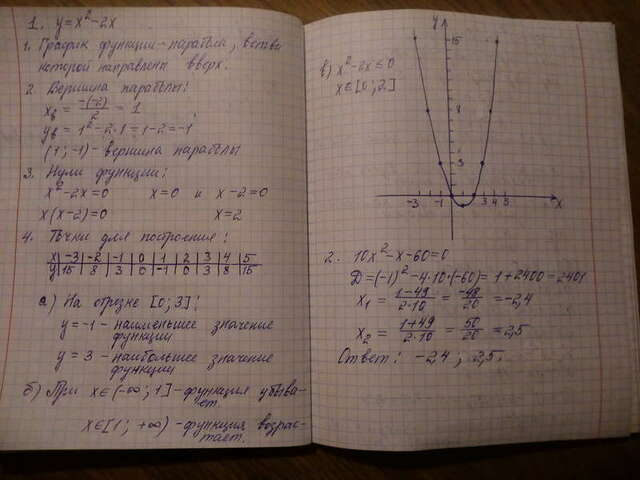 1. y = x² - 2x
1. График функции - парабола, ветви
которой направлены вверх.
2. Вершина параболы:
xв = -(-2)/2 = 1
yв = 1² - 2·1 = 1 - 2 = -1,
(1; -1) - вершина параболы
3. Нули функции:
x² - 2x = 0 x = 0 и x - 2 = 0
x(x - 2) = 0 x = 2
4. Точки для построения:
x | -3 | -2 | -1 | 0 | 1 | 2 | 3 | 4 | 5
y | 15 | 8 | 3 | 0 | -1 | 0 | 3 | 8 | 15
а) На отрезке [0; 3]:
y = -1 - наименьшее значение
функции
y = 3 - наибольшее значение
функции
б) При x∈(-∞; 1] - функция убыва-
ет.
x∈[1; +∞) - функция возрас-
тает.
в) x² - 2x ≤ 0
x∈[0; 2]
y
15
8
3
-3 -1 3 4 5 x
2. 10x² - x - 60 = 0
D = (-1)² - 4·10·(-60) = 1 + 2400 = 2401
x₁ = (1-49)/(2·10) = -48/20 = -2,4
x₂ = (1+49)/(2·10) = 50/20 = 2,5
Ответ: -2,4; 2,5.